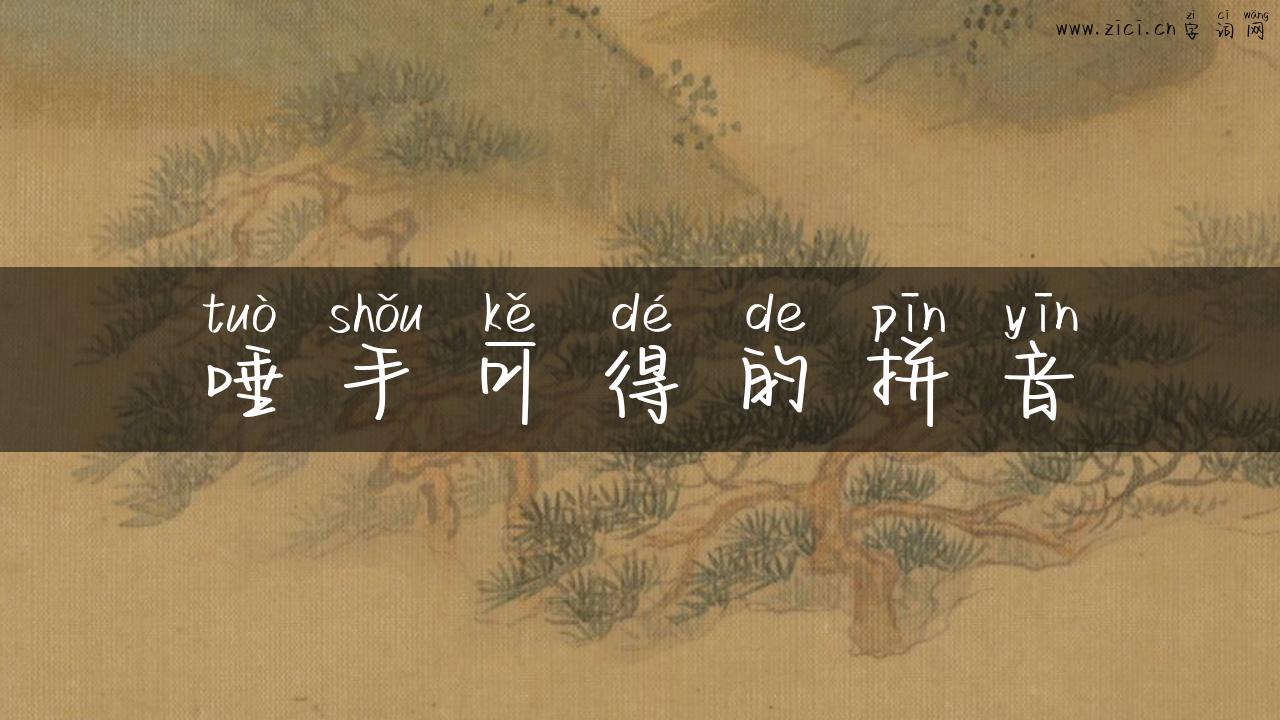 zì cí wǎng
www.zici.cn 字词网
tuò shǒu kě dé de pīn yīn
唾手可得的拼音